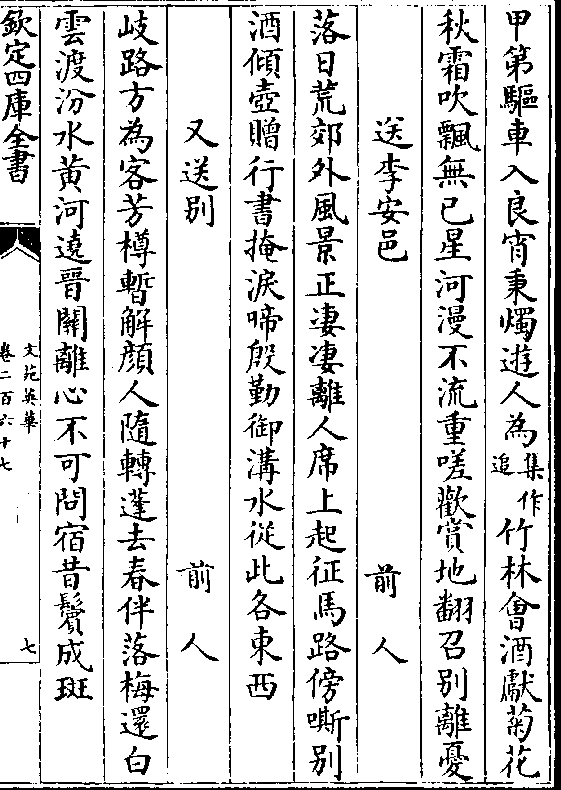 甲第驅車入良宵秉燭遊人為集作追竹林會酒獻菊花
秋霜吹飄無已星河漫不流重嗟歡賞地翻召别離憂
送李安邑 前人
落日荒郊外風景正淒淒離人席上起征馬路傍嘶别
酒傾壺贈行書掩淚啼殷勤御溝水從此各東西
又送别 前人
岐路方為客芳樽暫解顔人隨轉蓬去春伴落梅還白
雲渡汾水黄河遶晉關離心不可問宿昔鬢成斑
欽定四庫全書
文苑英華
卷二百六十七
七